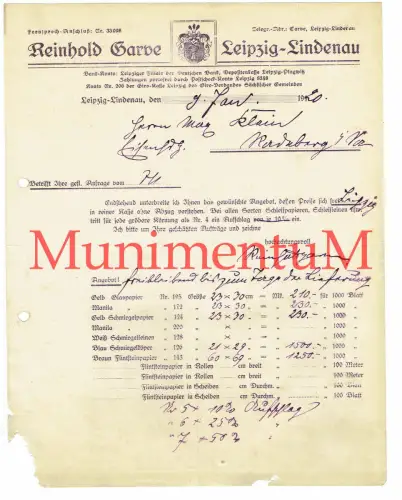 Fernsprech-Anschluß: Nr. 33098
Telegr.-Adr.: Garve, Leipzig-Lindenau
Reinhold Garve Leipzig-Lindenau
Bank-Konto: Leipziger Filiale der Deutschen Bank, Depositenkasse Leipzig-Plagwitz
Konto Nr. 200 der Giro-Kasse Leipzig des Giro-Verbandes Sächsischer Gemeinden
Leipzig-Lindenau, den 9. Jan. 1920.
Herrn Max Klein
Eisenhdlg.
Radeberg i/Sa
Betrifft Ihre gefl. Anfrage vom
Endstehend unterbreite ich Ihnen das gewünschte Angebot, dessen Preise sich frei Leipzig
in reiner Kasse ohne Abzug verstehen. Bei allen Sorten Schleifpapieren, Schleifleinen
tritt für jede gröbere Körnung als Nr. 4 ein Aufschlag
Ich bitte um Ihre geschätzten Aufträge und zeichne
hochachtungsvoll
MunimentuM
Angebot! freibleibend bis zum Tage der Lieferung
Gelb Glaspapier Nr. 195 Größe 23 × 30 cm = Mk. 210.- für 1000 Blatt
Manila " 172 " 23 × 30 " = " 230.- " 1000 "
Gelb Schmirgelpapier " 124 " 23 × 30 " = " 230.- " 1000 "
Manila " 200 " × " = " " 1000 "
Weiß Schmirgelleinen " 128 " × " = " " 1000 "
Blau Schmirgelleinen " 120 " 21 × 29 " = " 1500.- " 1000 "
Braun Flintsteinpapier " 143 " 60 × 69 " = " 1250.- " 1000 "
Flintsteinpapier in Rollen cm breit " " 100 Meter
Flintsteinpapier in Rollen cm breit " " 100 Meter
Flintsteinpapier in Scheiben cm Durchm. " " 100 Blatt
Flintsteinpapier in Scheiben cm Durchm. " " 100 Blatt
No 5 + 10% Aufschlag
" 6 + 25% "
" 7 + 50% "